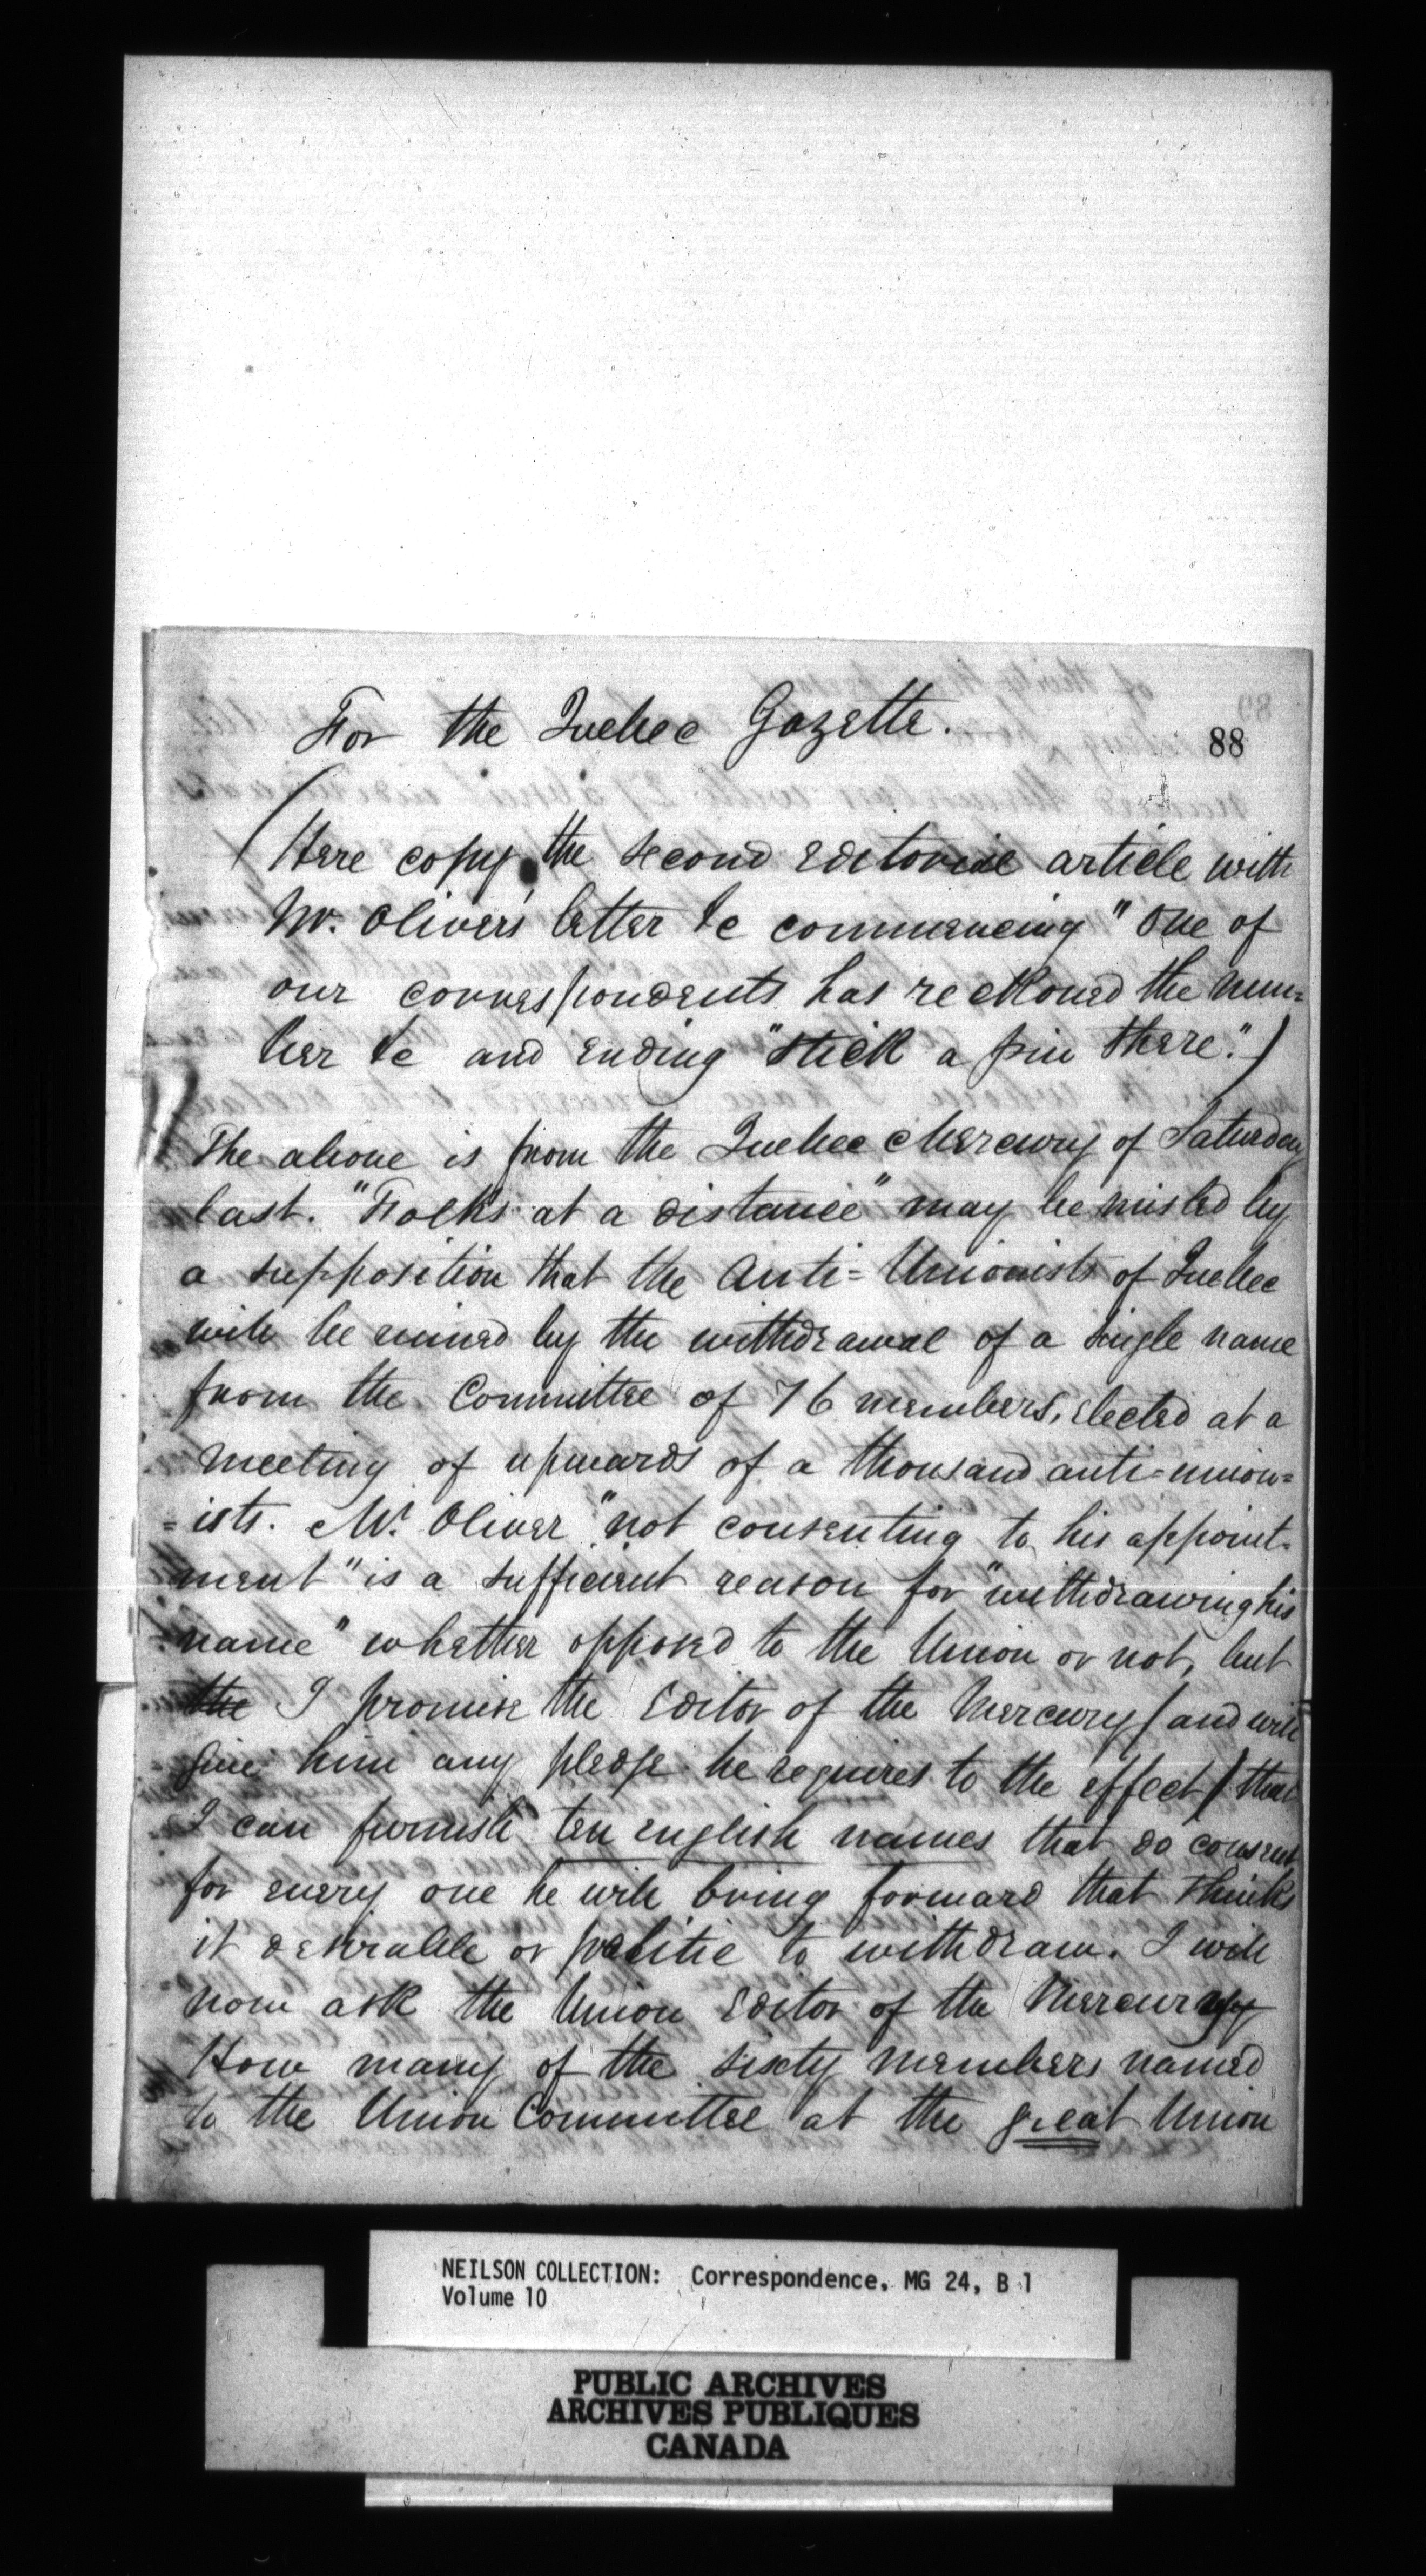 For the Quebec Gazette.
88
(Here copy the second editorial article with
Mr. Oliver's letter &c commencing "One of
our correspondents has reckoned the num=
ber &c and ending "stick a pin there.")
The above is from the Quebec Mercury of Saturday
last. "Folks at a distance" may be misled by
a supposition that the Anti=Unionists of Quebec
will be ruined by the withdrawal of a single name
from the Committee of 76 members, elected at a
meeting of upwards of a thousand anti=union=
=ists. Mr. Oliver "not consenting to his appoint=
ment" is a sufficient reason for "withdrawing his
name" whether opposed to the Union or not, but
the I promise the Editor of the Mercury (and will
give him any pledge he requires to the effect) that
I can furnish ten english names that do consent
for every one he will bring forward that thinks
it desirable or politic to withdraw. I will
now ask the Union Editor of the Mercury
How many of the sixty members named
to the Union Committee at the great Union
NEILSON COLLECTION: Correspondence, MG 24, B 1
Volume 10
PUBLIC ARCHIVES
ARCHIVES PUBLIQUES
CANADA